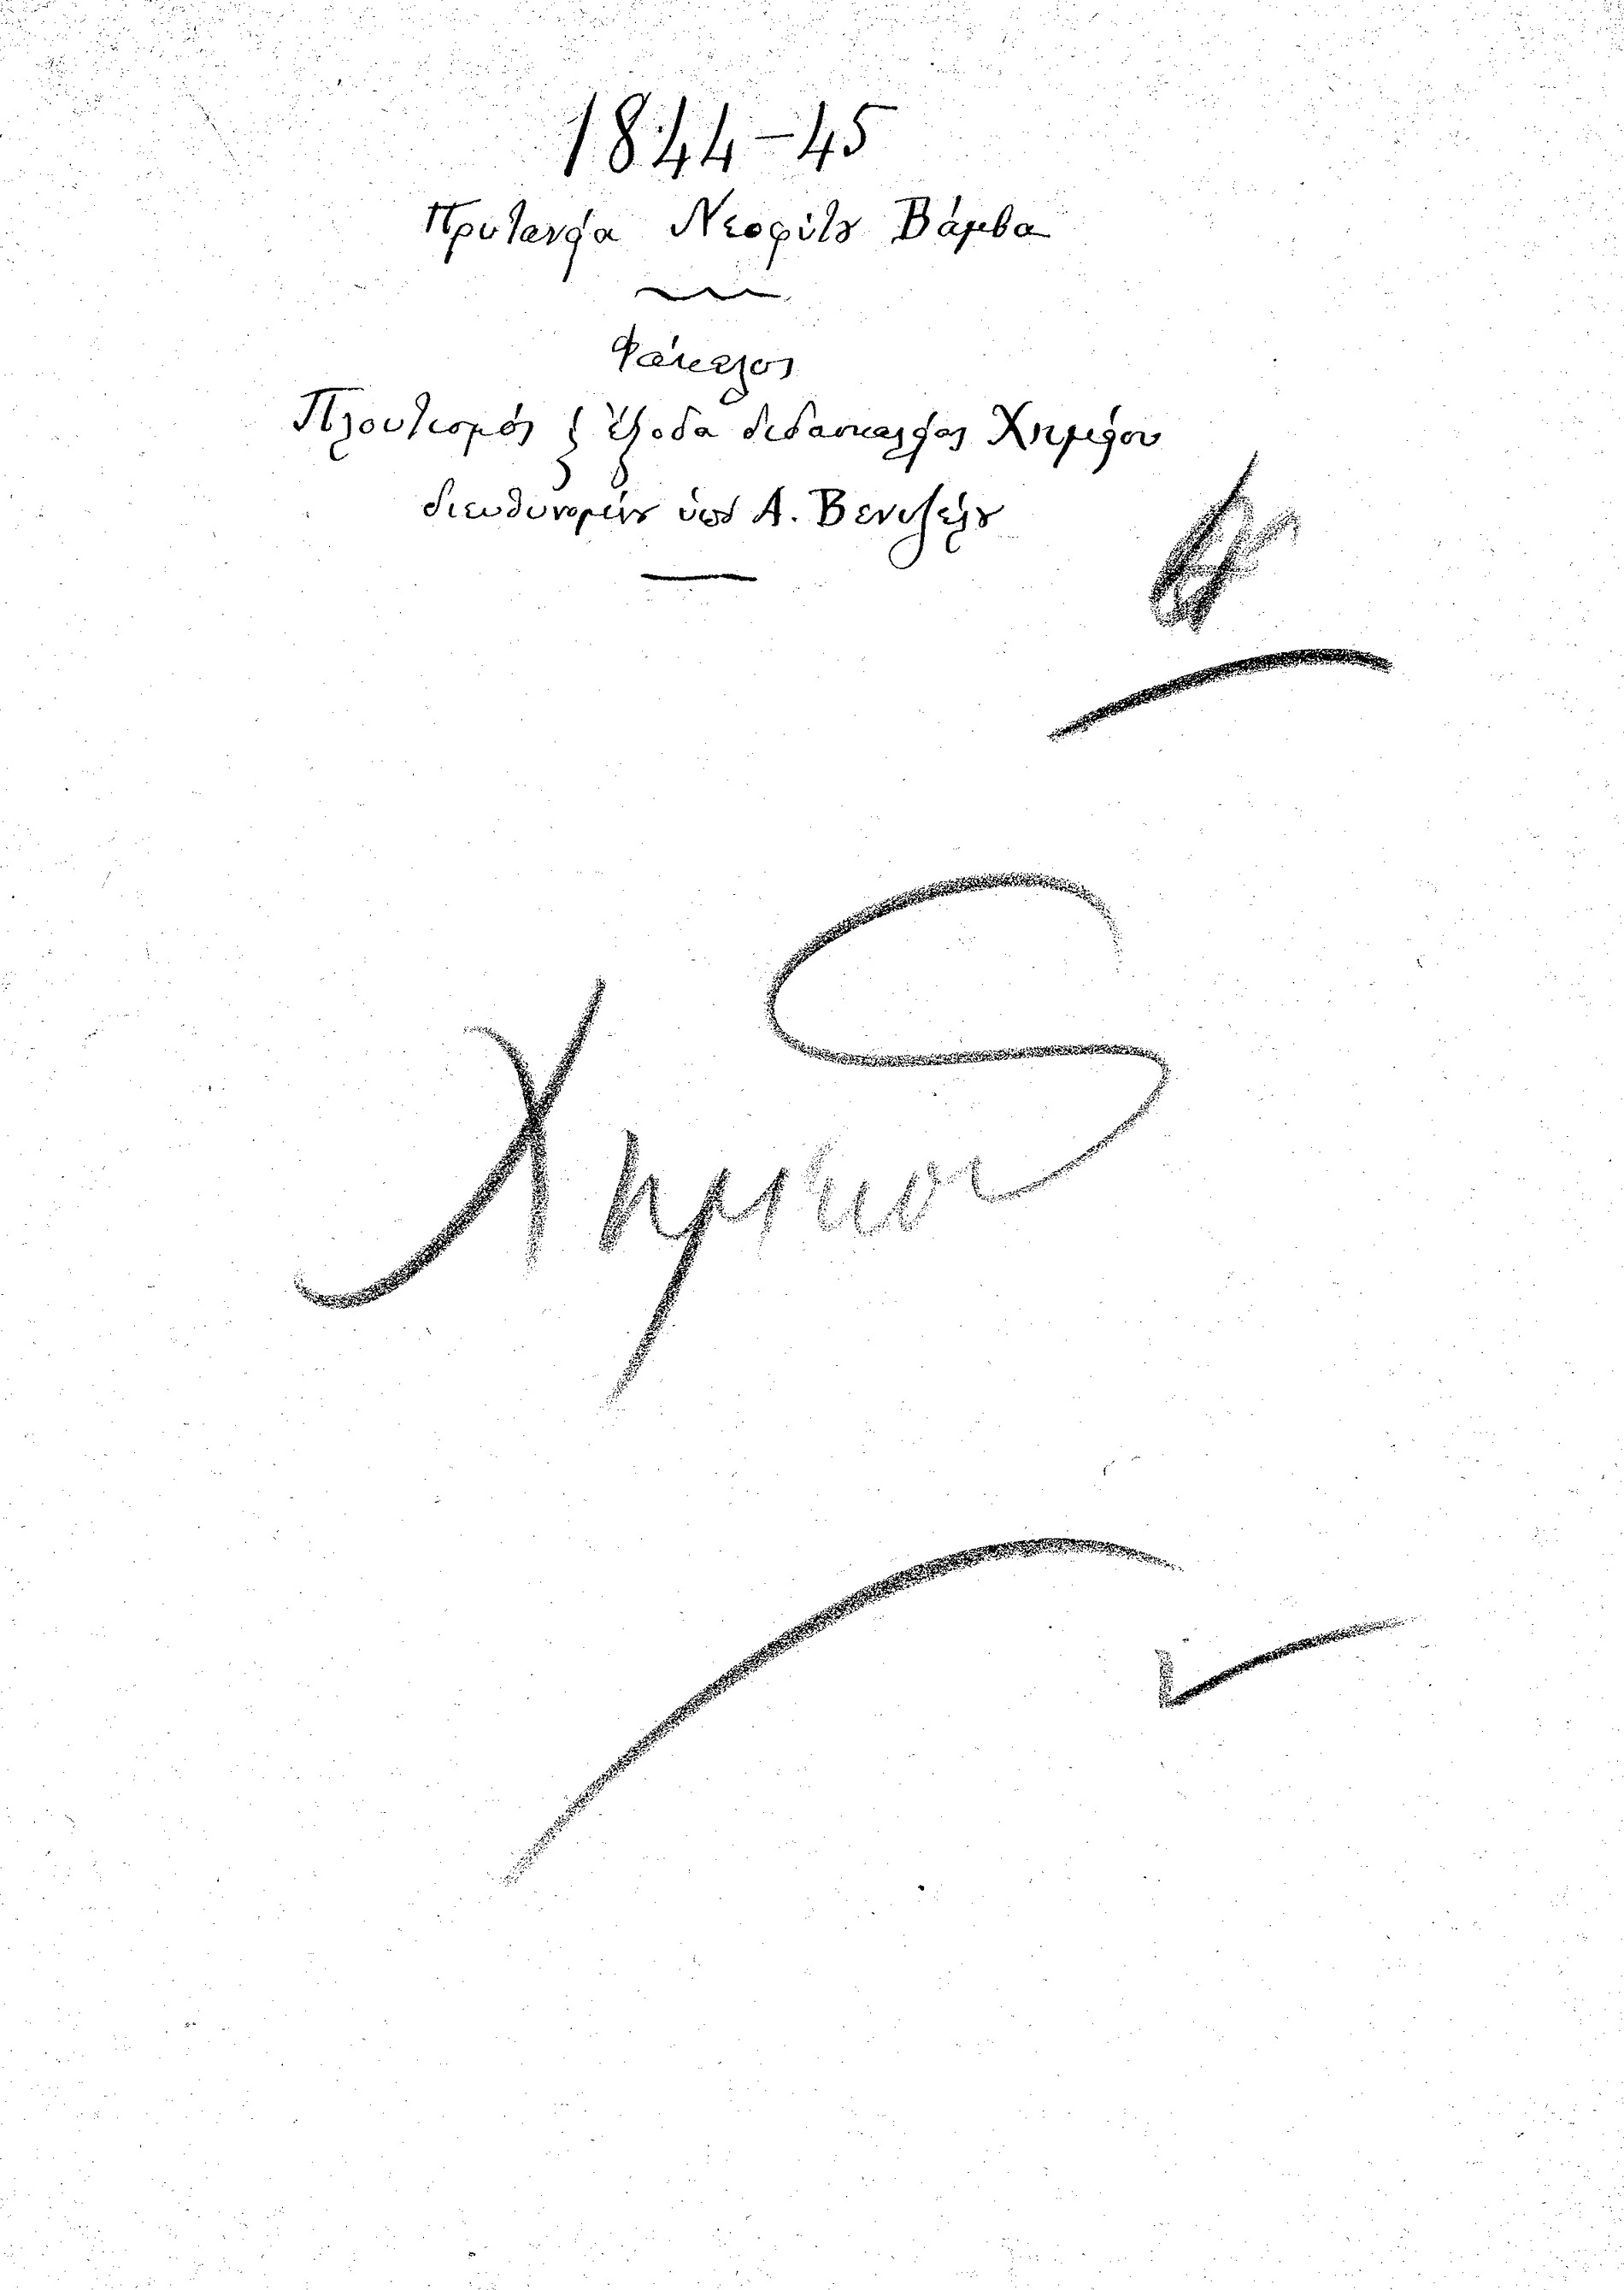 1844-45
Πρυτανεία Νεοφύτου Βάμβα
Φάκελος
Πλουτισμός & Έξοδα διδασκαλίας Χημείου
διευθυνομένου υπό Α. Βενιζέλου
Χημείον